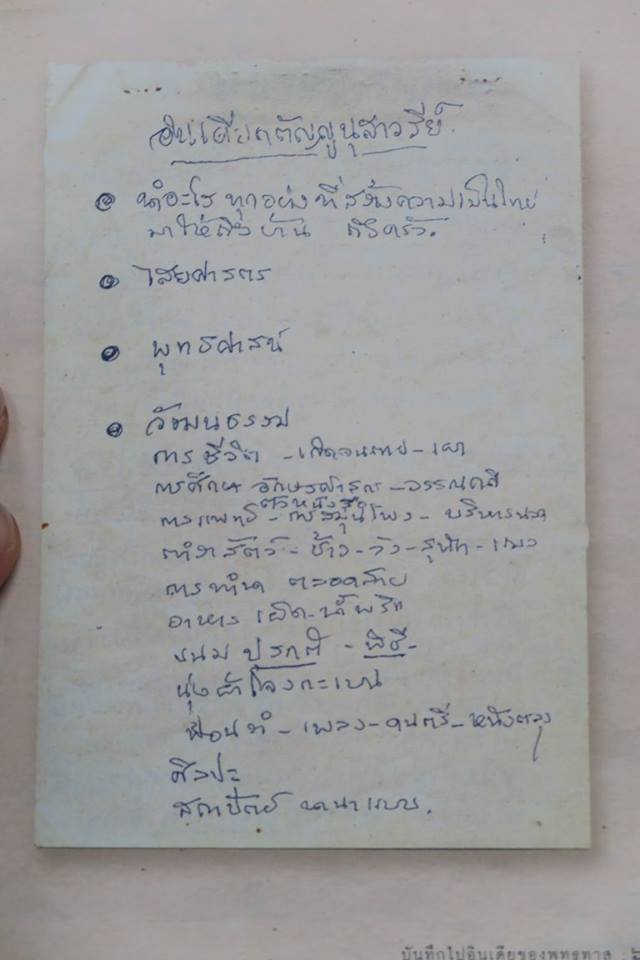 อินเดียกตัญญูนุสาวรีย์
นำอะไรทุกอย่างที่สร้างความเป็นไทย
มาให้ถึงบ้าน ถึงครัว.
ไสยศาสตร์
พุทธศาสน์
วัฒนธรรม
การชีวิต - เกิดจนตาย - เผา
การศึกษา อักษรศาสตร์ - วรรณคดี
ตัวหนังสือ
การแพทย์ - สมุนไพร - บริหารนวด
สัตว์ - ช้าง - วัว - สุนัข - แมว
การทำนา ตลอดสาย
อาหาร เผ็ด - น้ำพริก
ขนม ปรกติ - พิธี -
นุ่งผ้าโจงกะเบน
ฟ้อนรำ - เพลง - ดนตรี - หนังตลุง
ศิลปะ
สถาปัตย์ นานาแบบ.
บันทึกไปอินเดียของพุทธทาส